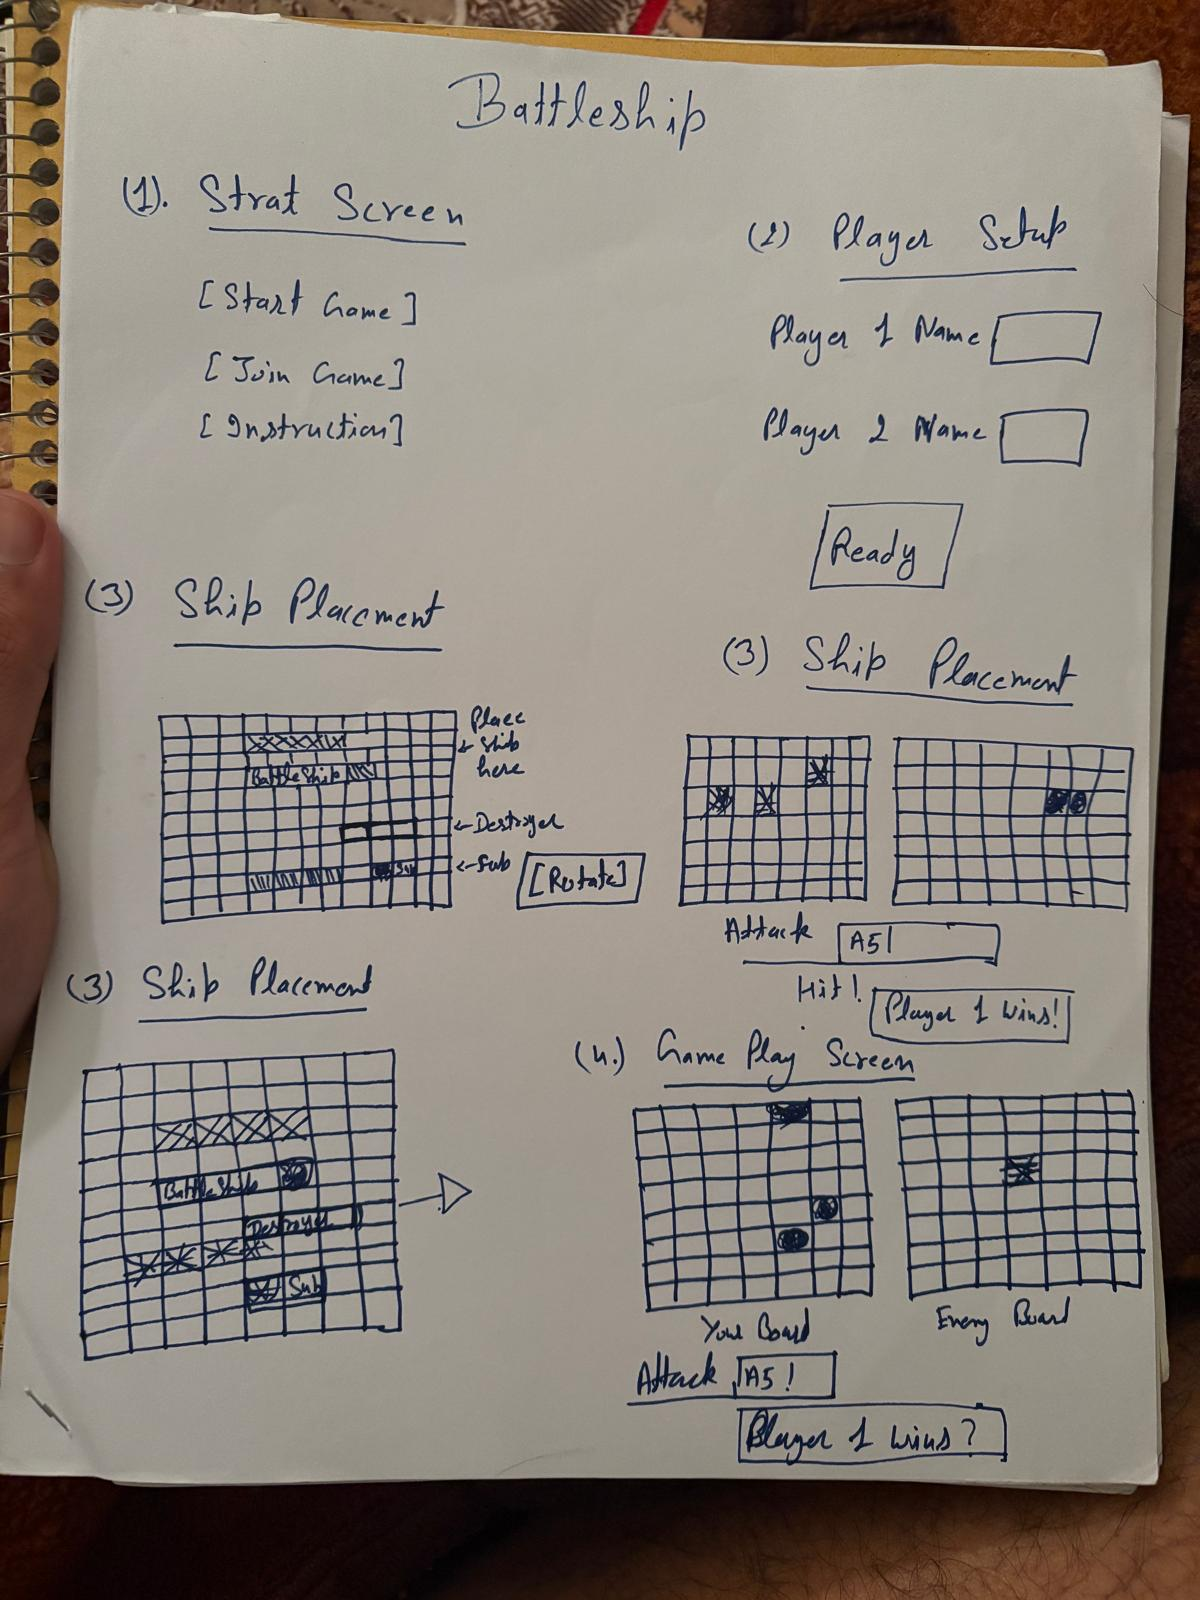 Battleship
(1). Strat Screen
[Start Game]
[Join Game]
[Instruction]
(2) Player Setup
Player 1 Name
Player 2 Name
Ready
(3) Ship Placement
Place
← Ship
here
BattleShip
← Destroyer
← Sub
Sub
[Rotate]
(3) Ship Placement
Attack A5|
Hit!
Player 1 wins!
(3) Ship Placement
BattleShip
Destroyer
Sub
(4.) Game Play Screen
Your Board
Enemy Board
Attack A5!
Player 1 wins?